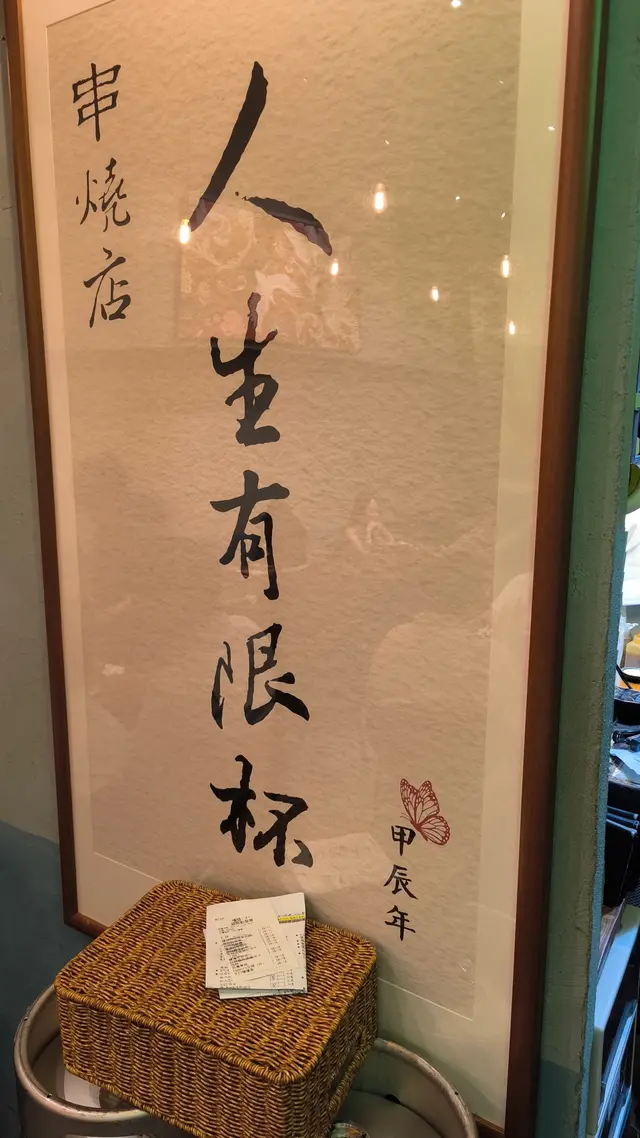 人生有限杯
串燒店
甲辰年